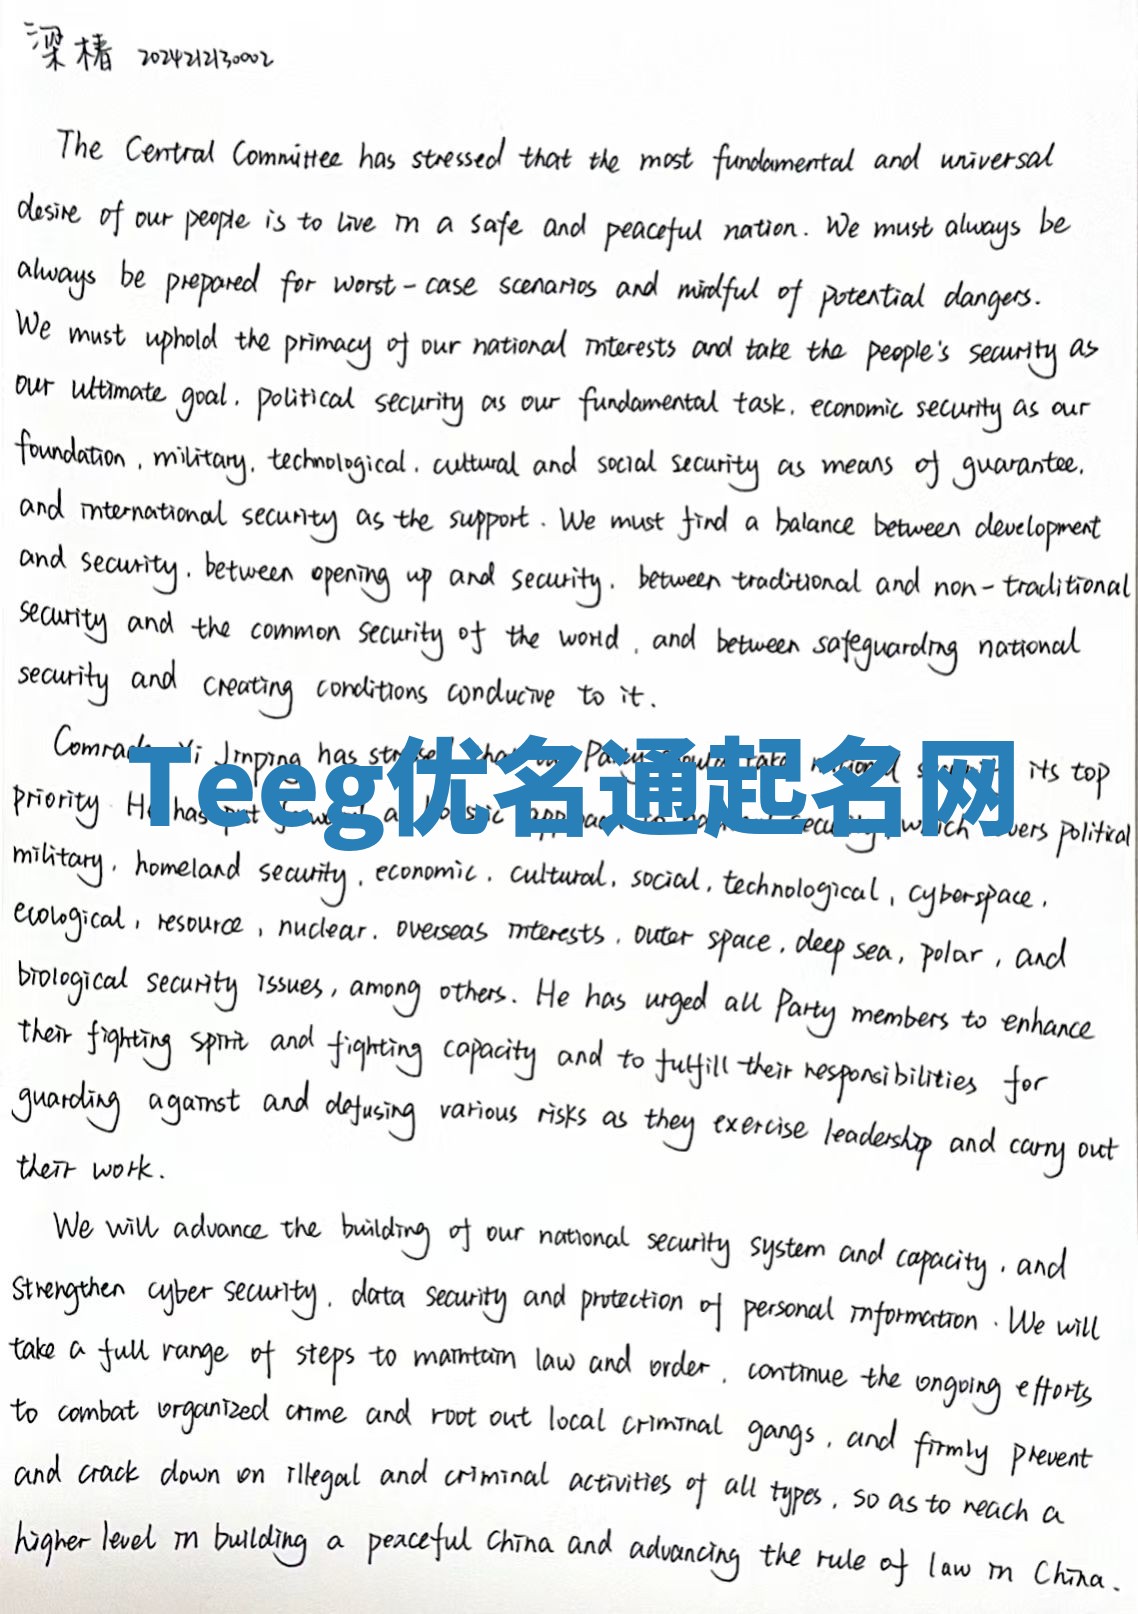 梁椿 2024212130002
The Central Committee has stressed that the most fundamental and universal
desire of our people is to live in a safe and peaceful nation. We must always be
always be prepared for worst-case scenarios and mindful of potential dangers.
We must uphold the primacy of our national interests and take the people's security as
our ultimate goal, political security as our fundamental task, economic security as our
foundation, military, technological, cultural and social security as means of guarantee,
and international security as the support. We must find a balance between development
and security, between opening up and security, between traditional and non-traditional
security and the common security of the world, and between safeguarding national
security and creating conditions conducive to it.
Jinping has its top
Teeg优名通起名网
priority He has put political
military, homeland security, economic, cultural, social, technological, cyberspace,
ecological, resource, nuclear, overseas interests, outer space, deep sea, polar, and
biological security issues, among others. He has urged all Party members to enhance
their fighting spirit and fighting capacity and to fulfill their responsibilities for
guarding against and defusing various risks as they exercise leadership and carry out
their work.
We will advance the building of our national security system and capacity, and
strengthen cyber security, data security and protection of personal information. We will
take a full range of steps to maintain law and order, continue the ongoing efforts
to combat organized crime and root out local criminal gangs, and firmly prevent
and crack down on illegal and criminal activities of all types, so as to reach a
higher level in building a peaceful China and advancing the rule of law in China.